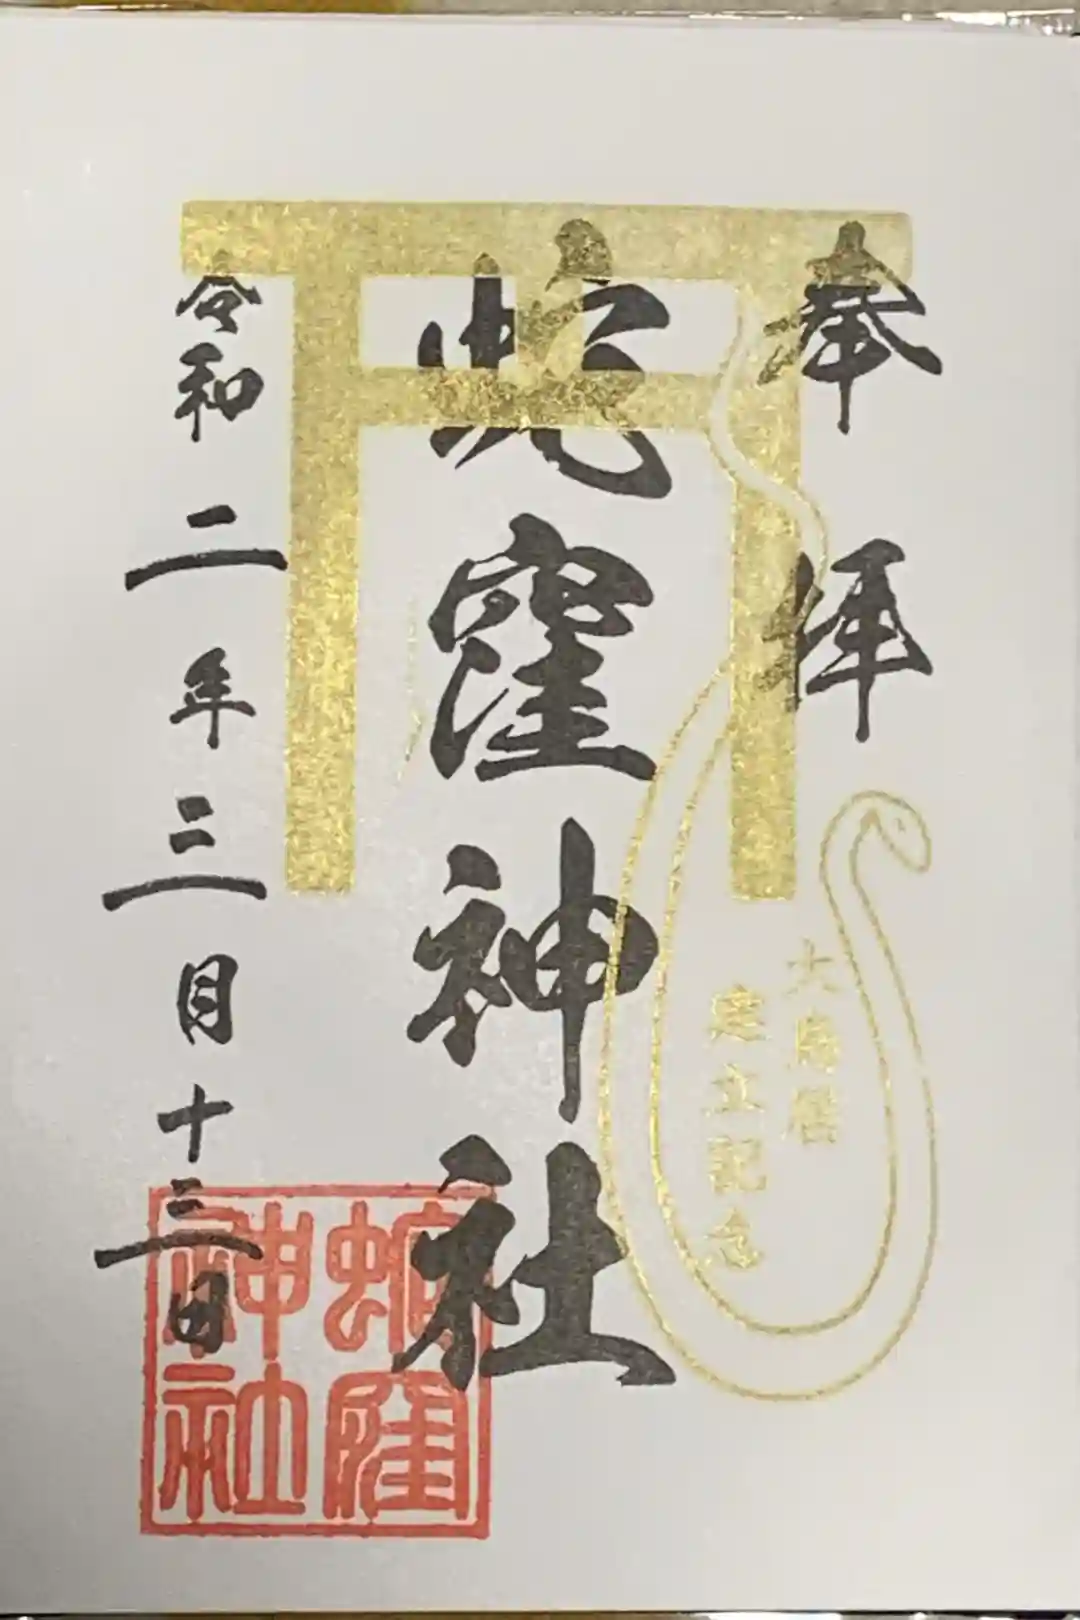 奉拝
蛇窪神社
令和二年三月十二日
大鳥居
建立記念
蛇窪
神社